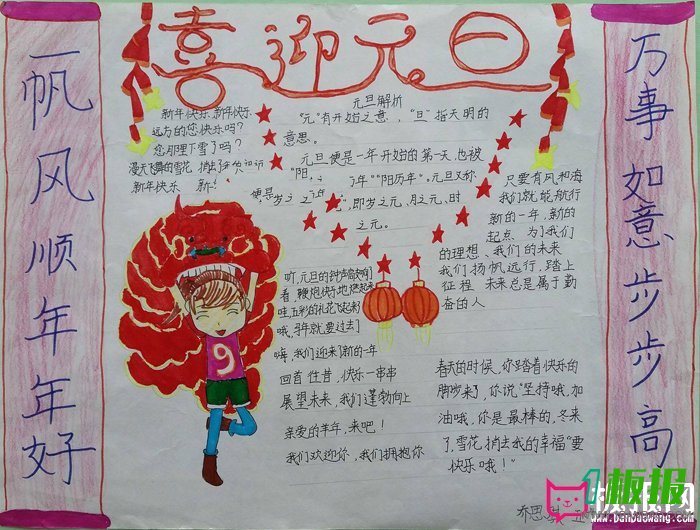 喜迎元旦
一帆风顺年年好
万事如意步步高
新年快乐、新年快乐
远方的您快乐吗?
您那里下雪了吗?
漫天飞舞的雪花
新年快乐
元旦解析
"元"有开始之意,"旦"指天明的
意思。
元旦便是一年开始的第一天,也被
"阳历年"。元旦又称
即岁之元、月之元、时
之元。
只要有风和海
我们就能航行
新的一年,新的
起点 为了我们
的理想、我们的未来
我们扬帆远行,踏上
征程 未来总是属于勤
奋的人
听,元旦的钟声敲响了
看 鞭炮快乐地
哇,五彩的礼花飞起来
哦,羊年就要过去了
嗨,我们迎来了新的一年
回首往昔,快乐一串串
展望未来,我们蓬勃向上
亲爱的羊年,来吧!
我们欢迎你,我们拥抱你
9
春天的时候,你踏着快乐的
脚步来了,你说"坚持哦,加
油哦,你是最棒的,冬来
了,雪花捎去我的幸福"要
快乐哦!"
乔思
板报
www.banbaowang.com